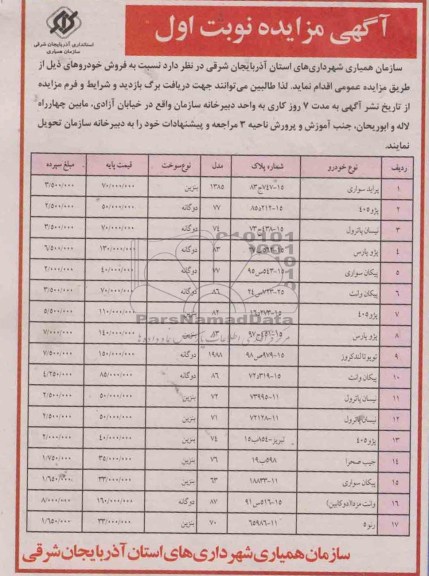 آگهی مزایده نوبت اول
استانداری آذربایجان شرقی
سازمان همیاری
سازمان همیاری شهرداری‌های استان آذربایجان شرقی در نظر دارد نسبت به فروش خودروهای ذیل از
طریق مزایده عمومی اقدام نماید. لذا طالبین می‌توانند جهت دریافت برگ بازدید و شرایط و فرم مزایده
از تاریخ نشر آگهی به مدت ۷ روز کاری به واحد دبیرخانه سازمان واقع در خیابان آزادی، مابین چهارراه
لاله و ابوریحان، جنب آموزش و پرورش ناحیه ۳ مراجعه و پیشنهادات خود را به دبیرخانه سازمان تحویل
نمایند.
ردیف نوع خودرو شماره پلاک مدل نوع سوخت قیمت پایه مبلغ سپرده
۱ پراید سواری ۱۳۸۵ بنزین ۷۰/۰۰۰/۰۰۰ ۳/۵۰۰/۰۰۰
۲ پژو ۴۰۵ ۷۷ دوگانه ۵۰/۰۰۰/۰۰۰ ۲/۵۰۰/۰۰۰
۳ نیسان پاترول ۷۴ بنزین ۷۰/۰۰۰/۰۰۰ ۳/۵۰۰/۰۰۰
۴ پژو پارس ۸۳ دوگانه ۱۳۰/۰۰۰/۰۰۰ ۶/۵۰۰/۰۰۰
۵ پیکان سواری ۷۷ دوگانه ۴۰/۰۰۰/۰۰۰ ۲/۰۰۰/۰۰۰
۶ پیکان وانت ۸۶ دوگانه ۷۰/۰۰۰/۰۰۰ ۳/۵۰۰/۰۰۰
۷ پژو ۴۰۵ ۸۲ ۱۱۰/۰۰۰/۰۰۰ ۵/۵۰۰/۰۰۰
۸ پژو پارس ۸۳ بنزین ۱۴۰/۰۰۰/۰۰۰ ۷/۰۰۰/۰۰۰
۹ تویوتا لندکروز ۱۹۸۸ دوگانه ۱۵۰/۰۰۰/۰۰۰ ۷/۵۰۰/۰۰۰
۱۰ پیکان وانت ۸۶ دوگانه ۸۵/۰۰۰/۰۰۰ ۴/۲۵۰/۰۰۰
۱۱ نیسان پاترول ۷۳۹۹۵-۱۱ ۷۲ بنزین ۵۰/۰۰۰/۰۰۰ ۲/۵۰۰/۰۰۰
۱۲ نیسان پاترول ۷۲۱۲۸-۱۱ ۷۱ بنزین ۵۰/۰۰۰/۰۰۰ ۲/۵۰۰/۰۰۰
۱۳ پژو ۴۰۵ ۷۴ بنزین ۴۰/۰۰۰/۰۰۰ ۲/۰۰۰/۰۰۰
۱۴ جیب صحرا ۷۶ بنزین ۳۵/۰۰۰/۰۰۰ ۱/۷۵۰/۰۰۰
۱۵ پیکان سواری ۱۸۸۳۳-۱۱ ۶۳ بنزین ۳۳/۰۰۰/۰۰۰ ۱/۶۵۰/۰۰۰
۱۶ وانت مزدا(دوکابین) ۸۷ دوگانه ۱۶۰/۰۰۰/۰۰۰ ۸/۰۰۰/۰۰۰
۱۷ رنو ۵ ۶۵۹۸۶-۱۱ ۷۰ بنزین ۳۳/۰۰۰/۰۰۰ ۱/۶۵۰/۰۰۰
ParsNamadData
سازمان همیاری شهرداری‌های استان آذربایجان شرقی